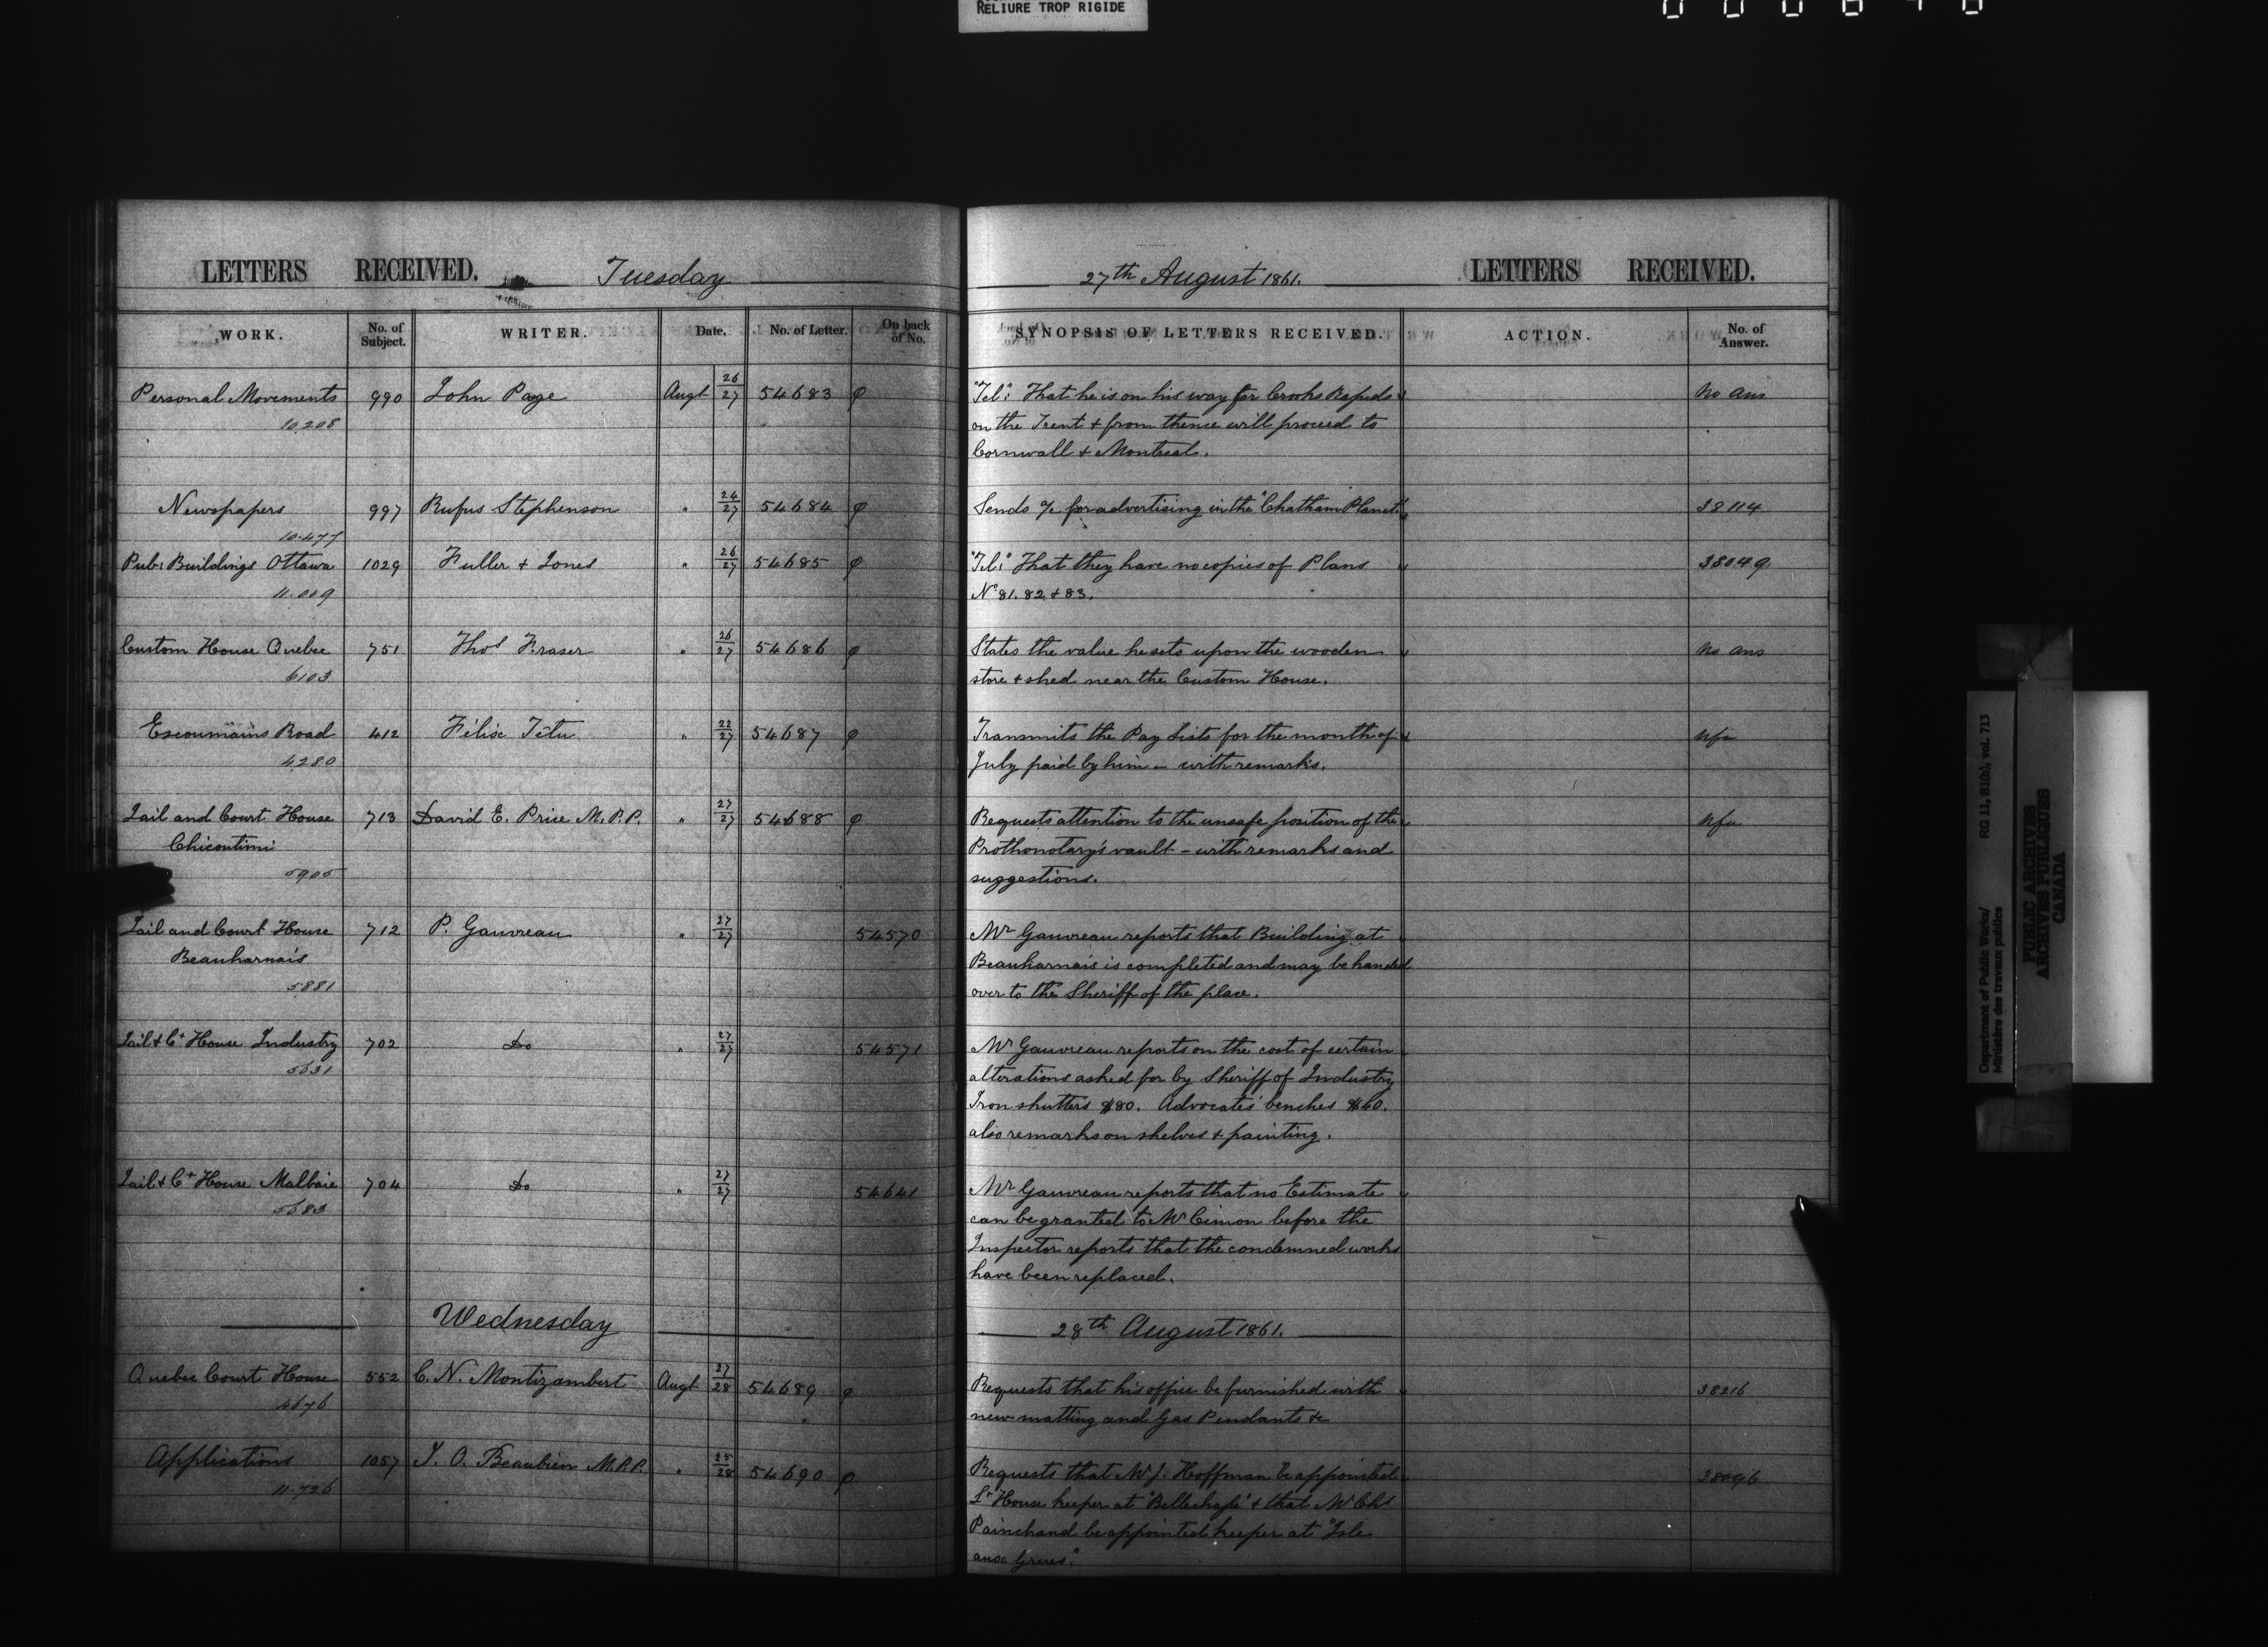 RELIURE TROP RIGIDE
LETTERS RECEIVED. Tuesday
WORK. No. of Subject. WRITER. Date. No. of Letter. On back of No.
Personal Movements 990 John Page Augt 26/27 54683 φ
10.208
Newspapers 997 Rufus Stephenson " 24/27 54684 φ
10.477
Pub: Buildings Ottawa 1029 Fuller & Jones " 26/27 54685 φ
11.009
Custom House Quebec 751 Thos Fraser " 26/27 54686 φ
6103
Escoumains Road 412 Félix Tétu " 22/27 54687 φ
4280
Jail and Court House 713 David E. Price M.P.P. " 27/27 54688 φ
Chicoutimi
5905
Jail and Court House 712 P. Gauvreau " 27/27 54570
Beauharnais
5881
Jail & Ct House Industry 702 Do " 27/27 54571
5631
Jail & Ct House Malbaie 704 Do " 27/27 54641
5683
Wednesday
Quebec Court House 552 C. N. Montizambert Augt 27/28 54689 φ
4676
Applications 1057 J. O. Beaubien M.P.P. " 25/28 54690 φ
11.726
27th August 1861. LETTERS RECEIVED.
SYNOPSIS OF LETTERS RECEIVED. ACTION. No. of Answer.
"Tel": That he is on his way for Crooks Rapids No Ans
on the Trent & from thence will proceed to
Cornwall & Montreal.
Sends a/c for advertising in the "Chatham Planet." 38114
"Tel:" That they have no copies of Plans 38049
No 81. 82 & 83.
States the value he sets upon the wooden No Ans
store & shed near the Custom House.
Transmits the Pay Lists for the month of Nfa
July paid by him - with remarks.
Requests attention to the unsafe position of the Nfa
Prothonotary's vault - with remarks and
suggestions.
Mr Gauvreau reports that Building at
Beauharnais is completed and may be handed
over to the Sheriff of the place.
Mr Gauvreau reports on the cost of certain
alterations asked for by Sheriff of Industry
Iron shutters $80. Advocates' benches $60.
also remarks on shelves & painting.
Mr Gauvreau reports that no Estimate
can be granted to Mr Cimon before the
Inspector reports that the condemned works
have been replaced.
28th August 1861.
Requests that his office be furnished with 38216
new matting and Gas Pendants &c
Requests that Mr J. Hoffman be appointed 38096
Lt House keeper at "Bellechasse" & that Mr Chs
Painchaud be appointed keeper at "Isle
aux Grues."
Department of Public Works/ RG 11, B1(b), vol. 713
Ministère des travaux publics
PUBLIC ARCHIVES
ARCHIVES PUBLIQUES
CANADA